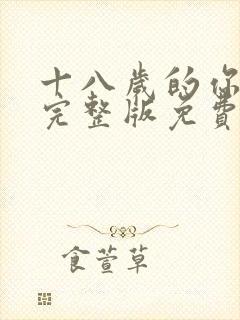 十八歲的你
完整版免費
食萱草